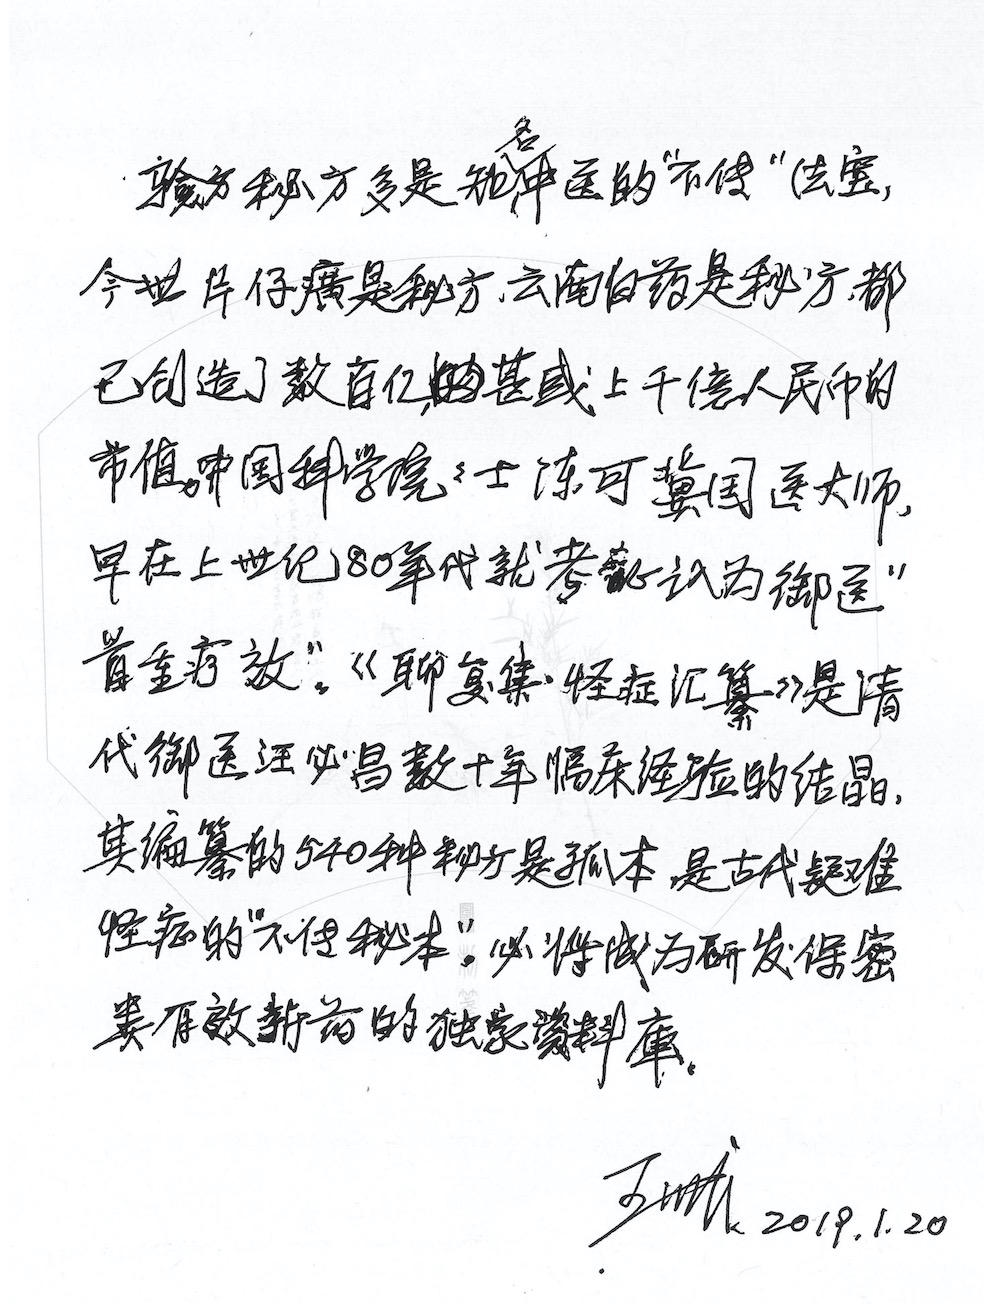 验方秘方多是知名中医的“不传“法宝,
今世片仔癀是秘方、云南白药是秘方,都
已创造了数百亿,甚或上千億人民币的
市值。中国科学院院士陈可冀国医大师,
早在上世纪80年代就考 认为御医”
首重疗效”。《聊复集·怪症汇纂》是清
代御医汪必昌数十年临床经验的结晶,
其编纂的540种秘方是孤本,是古代疑难
怪症的“不传秘本”。必将成为研发保密
类有效新药的独家资料库。
2019.1.20